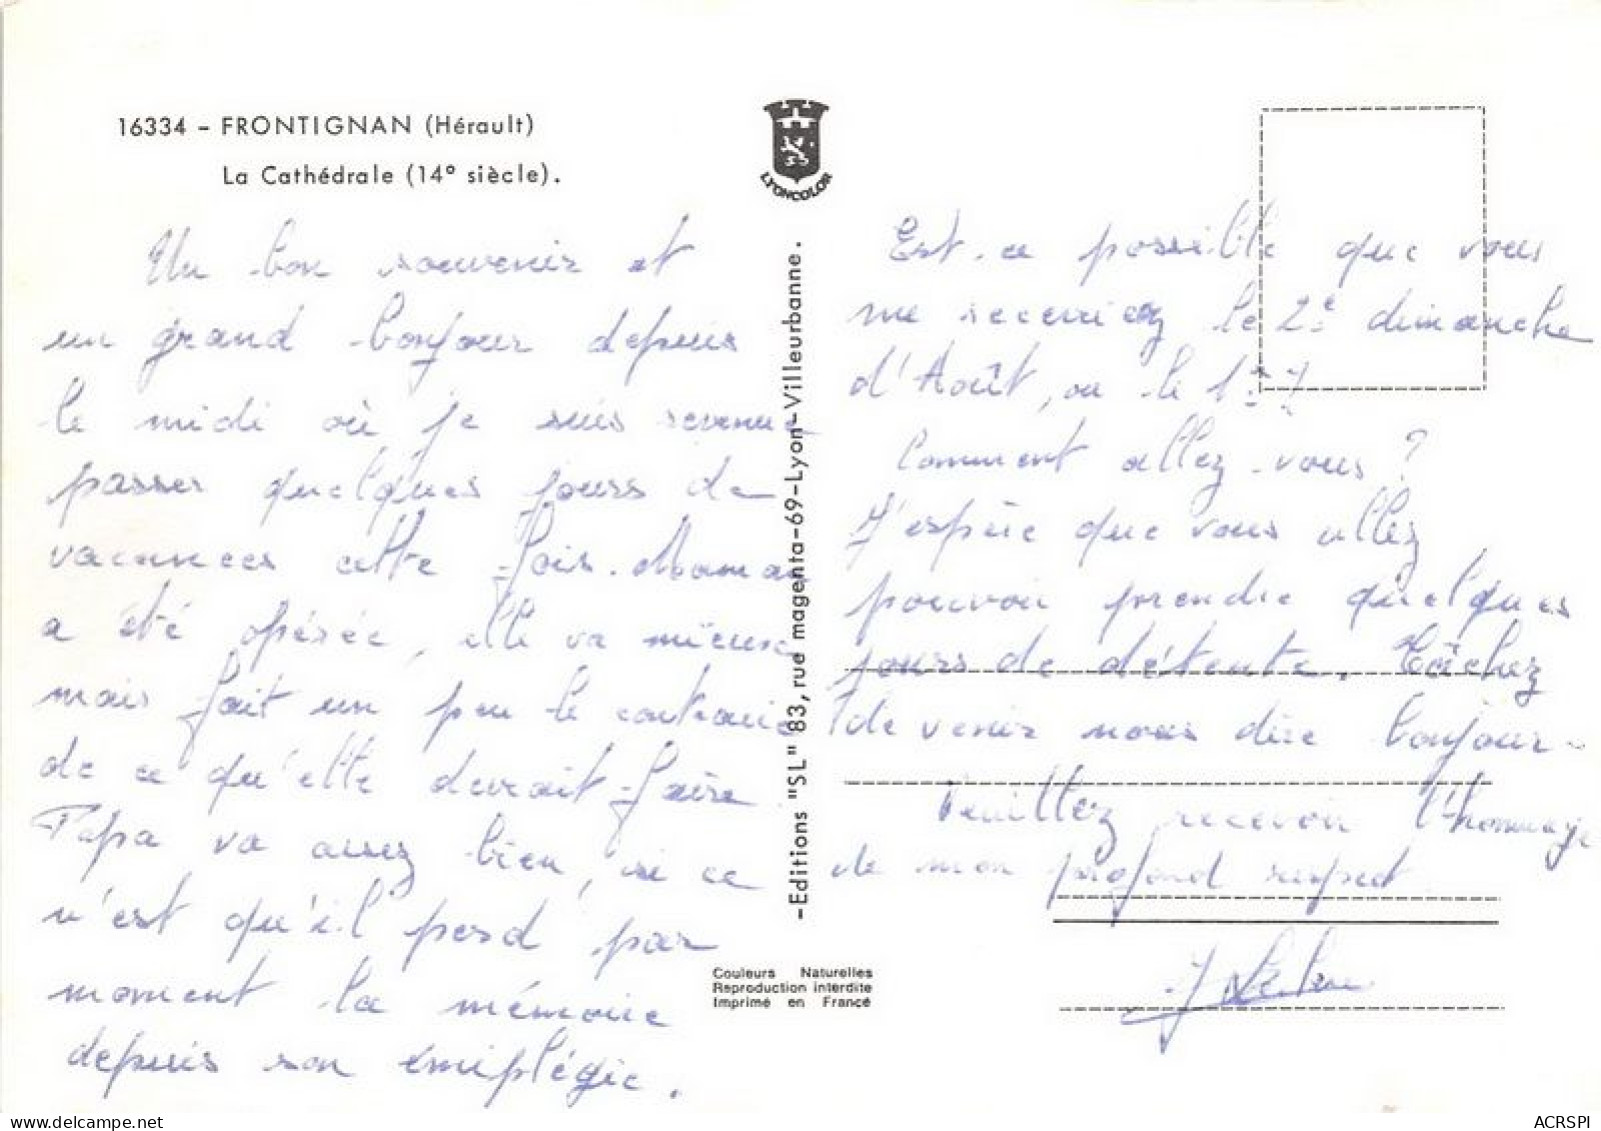 16334 - FRONTIGNAN (Hérault)
La Cathédrale (14e siècle).
Un bon souvenir et
un grand bonjour depuis
le midi où je suis revenue
passer quelques jours de
vacances cette fois. Maman
a été opérée, elle va mieux
mais fait un peu le contraire
de ce qu'elle devrait faire.
Papa va assez bien, si ce
n'est qu'il perd par
moment la mémoire
depuis son émiplégie.
LYONCOLOR
-Editions "SL" 83, rue magenta-69-Lyon-Villeurbanne.
Couleurs Naturelles
Reproduction interdite
Imprimé en France
Est-ce possible que vous
me receviez le 2e dimanche
d'Août, ou le 1er ?
Comment allez-vous ?
J'espère que vous allez
pouvoir prendre quelques
jours de détente. Tâchez
de venir nous dire bonjour.
Veuillez recevoir l'hommage
de mon profond respect.
ACRSPI